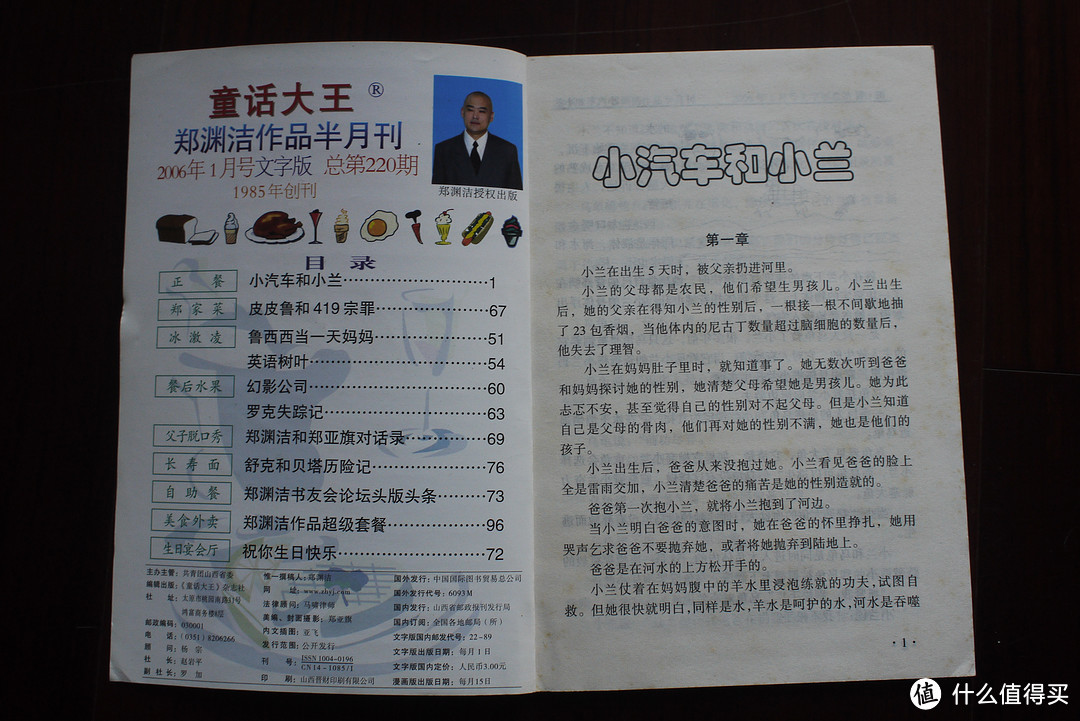 童话大王®
郑渊洁作品半月刊
2006年1月号文字版 总第220期
1985年创刊
郑渊洁授权出版
目录
正餐 小汽车和小兰……1
郑家菜 皮皮鲁和419宗罪……67
冰激凌 鲁西西当一天妈妈……51
英语树叶……54
餐后水果 幻影公司……60
罗克失踪记……63
父子脱口秀 郑渊洁和郑亚旗对话录……69
长寿面 舒克和贝塔历险记……76
自助餐 郑渊洁书友会论坛头版头条……73
美食外卖 郑渊洁作品超级套餐……96
生日宴会厅 祝你生日快乐……72
主办主管：共青团山西省委
编辑出版：《童话大王》杂志社
社 址：太原市桃园南路31号
鸿富商务楼8层
邮政编码：030001
电 话：(0351) 8206266
顾 问：杨 宗
社 长：赵岩平
副社长：罗 加
惟一撰稿人：郑渊洁
网 址：www.zhyj.com
法律顾问：马骕律师
美编、封面摄影：郑亚旗
内文插图：亚飞
发行范围：公开发行
刊 号：ISSN 1004-0196
CN 14-1085/I
印 刷：山西晋财印刷有限公司
国外发行：中国国际图书贸易总公司
国外发行代号：6093M
国内发行：山西省邮政报刊发行局
国内订阅：全国各地邮局（所）
文字版国内邮发代号：22-89
文字版出版日期：每月1日
文字版国内定价：人民币3.00元
漫画版出版日期：每月15日
小汽车和小兰
第一章
小兰在出生5天时，被父亲扔进河里。
小兰的父母都是农民，他们希望生男孩儿。小兰出生
后，她的父亲在得知小兰的性别后，一根接一根不间歇地抽
了23包香烟，当他体内的尼古丁数量超过脑细胞的数量后，
他失去了理智。
小兰在妈妈肚子里时，就知道事了。她无数次听到爸爸
和妈妈探讨她的性别，她清楚父母希望她是男孩儿。她为此
忐忑不安，甚至觉得自己的性别对不起父母。但是小兰知道
自己是父母的骨肉，他们再对她的性别不满，她也是他们的
孩子。
小兰出生后，爸爸从来没抱过她。小兰看见爸爸的脸上
全是雷雨交加，小兰清楚爸爸的痛苦是她的性别造就的。
爸爸第一次抱小兰，就将小兰抱到了河边。
当小兰明白爸爸的意图时，她在爸爸的怀里挣扎，她用
哭声乞求爸爸不要抛弃她，或者将她抛弃到陆地上。
爸爸是在河水的上方松开手的。
小兰仗着在妈妈腹中的羊水里浸泡练就的功夫，试图自
救。但她很快就明白，同样是水，羊水是呵护的水，河水是吞噬
·1·
值 什么值得买